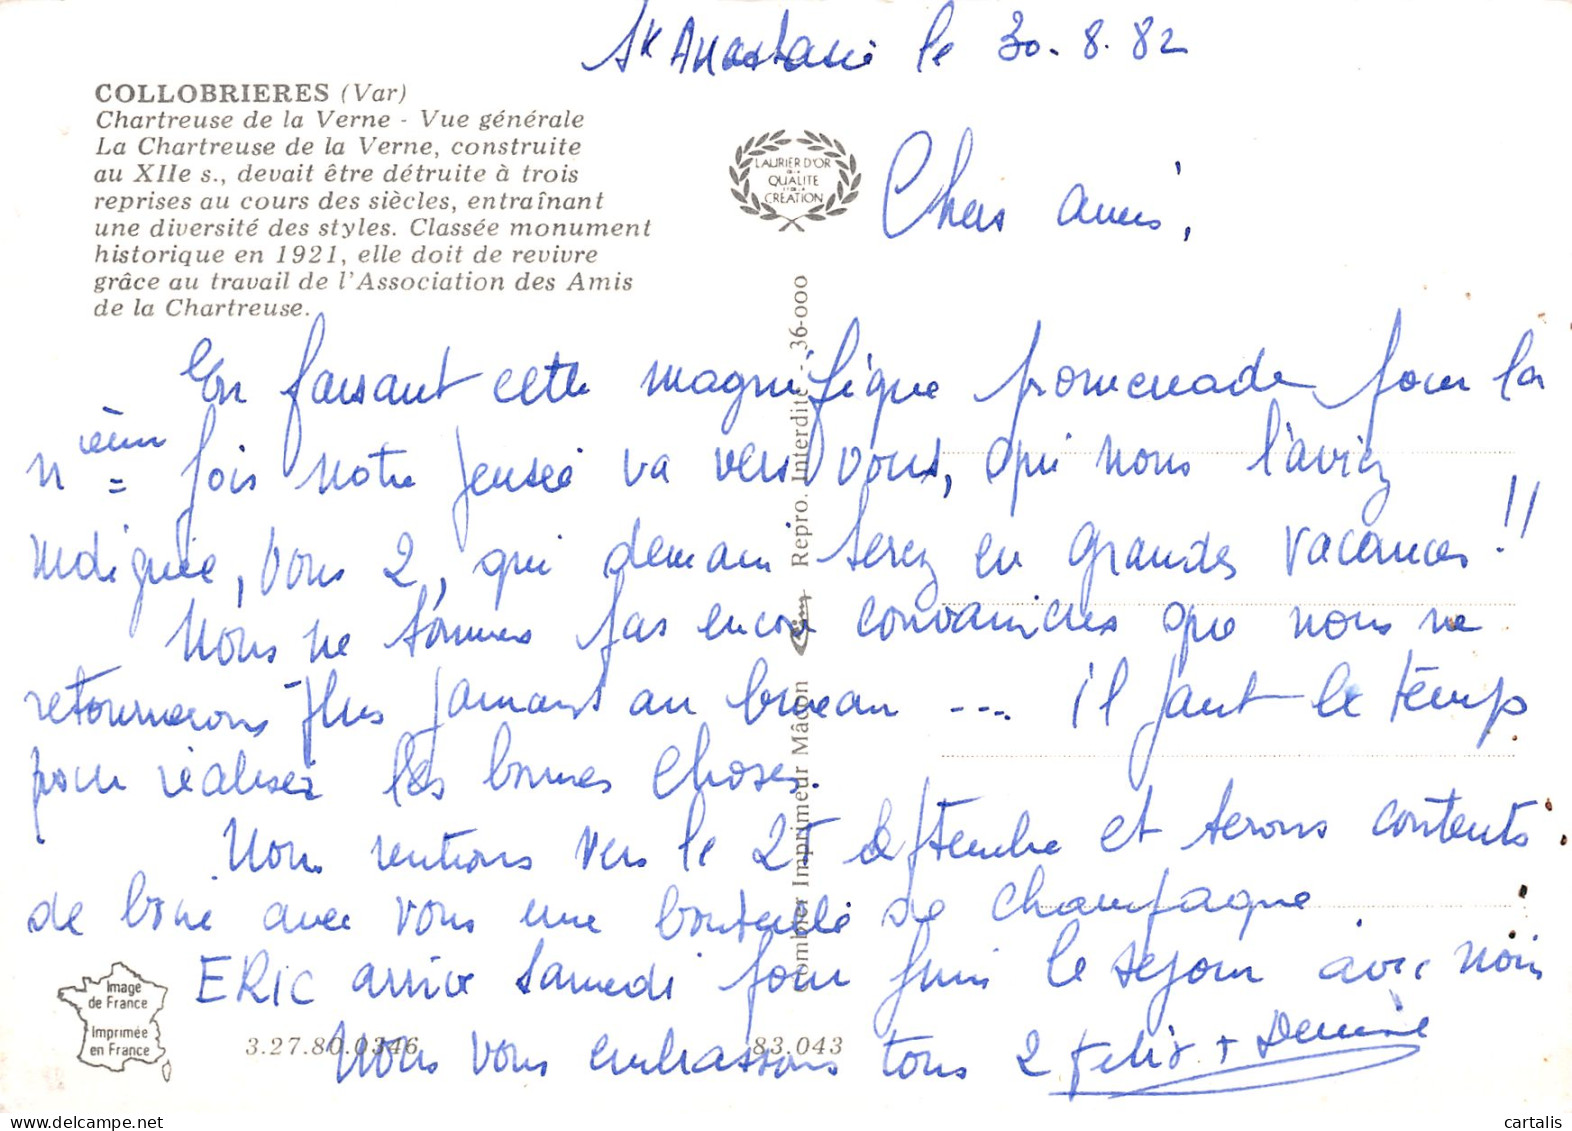 Ste Anastasie le 30.8.82
COLLOBRIERES (Var)
Chartreuse de la Verne - Vue générale
La Chartreuse de la Verne, construite
au XIIe s., devait être détruite à trois
reprises au cours des siècles, entraînant
une diversité des styles. Classée monument
historique en 1921, elle doit de revivre
grâce au travail de l'Association des Amis
de la Chartreuse.
LAURIER D'OR
DE LA
QUALITE
ET DE LA
CREATION
Chers amis,
En faisant cette magnifique promenade pour la
nième fois notre pensée va vers vous, qui nous l'aviez
indiquée, vous 2, qui demain serez en grandes vacances !!
Nous ne sommes pas encore convaincus que nous ne
retournerons plus jamais au bureau --- il faut le temps
pour réaliser les bonnes choses.
Nous rentrons vers le 25 septembre et serons contents
de boire avec vous une bouteille de champagne
ERIC arrive samedi pour finir le séjour avec nous
Nous vous embrassons tous 2 Félix + Denise
Combier Imprimeur Mâcon Cim Repro. Interdite - 36-000
Image
de France
Imprimée
en France
3.27.80.0346
83.043
cartalis